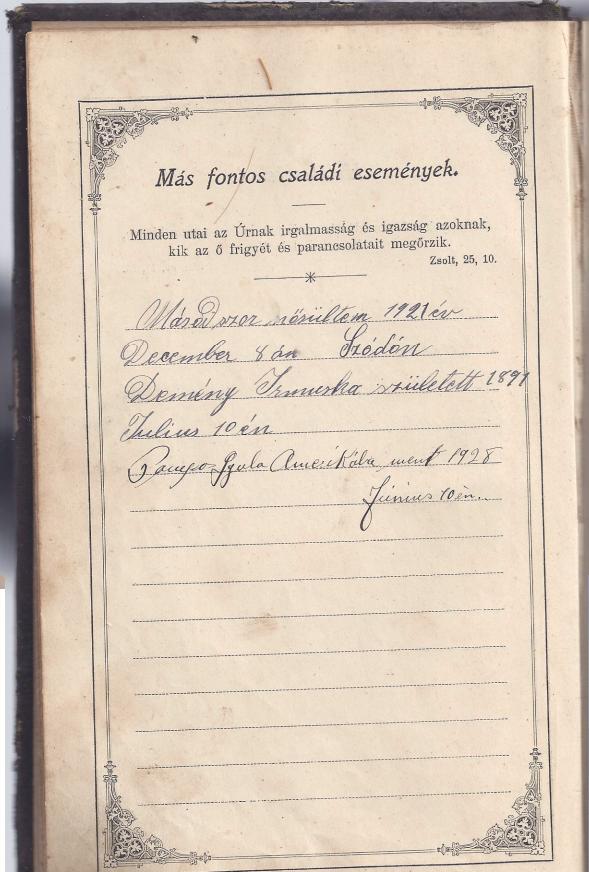 Más fontos családi események.
Minden utai az Úrnak irgalmasság és igazság azoknak,
kik az ő frigyét és parancsolatait megőrzik.
Zsolt, 25, 10.
Másodszor nősültem 1921 év
December 8 án Sződön
Demény Irmuska született 1891
Julius 10 én
Gyula Amerikába ment 1928
Június 10 én